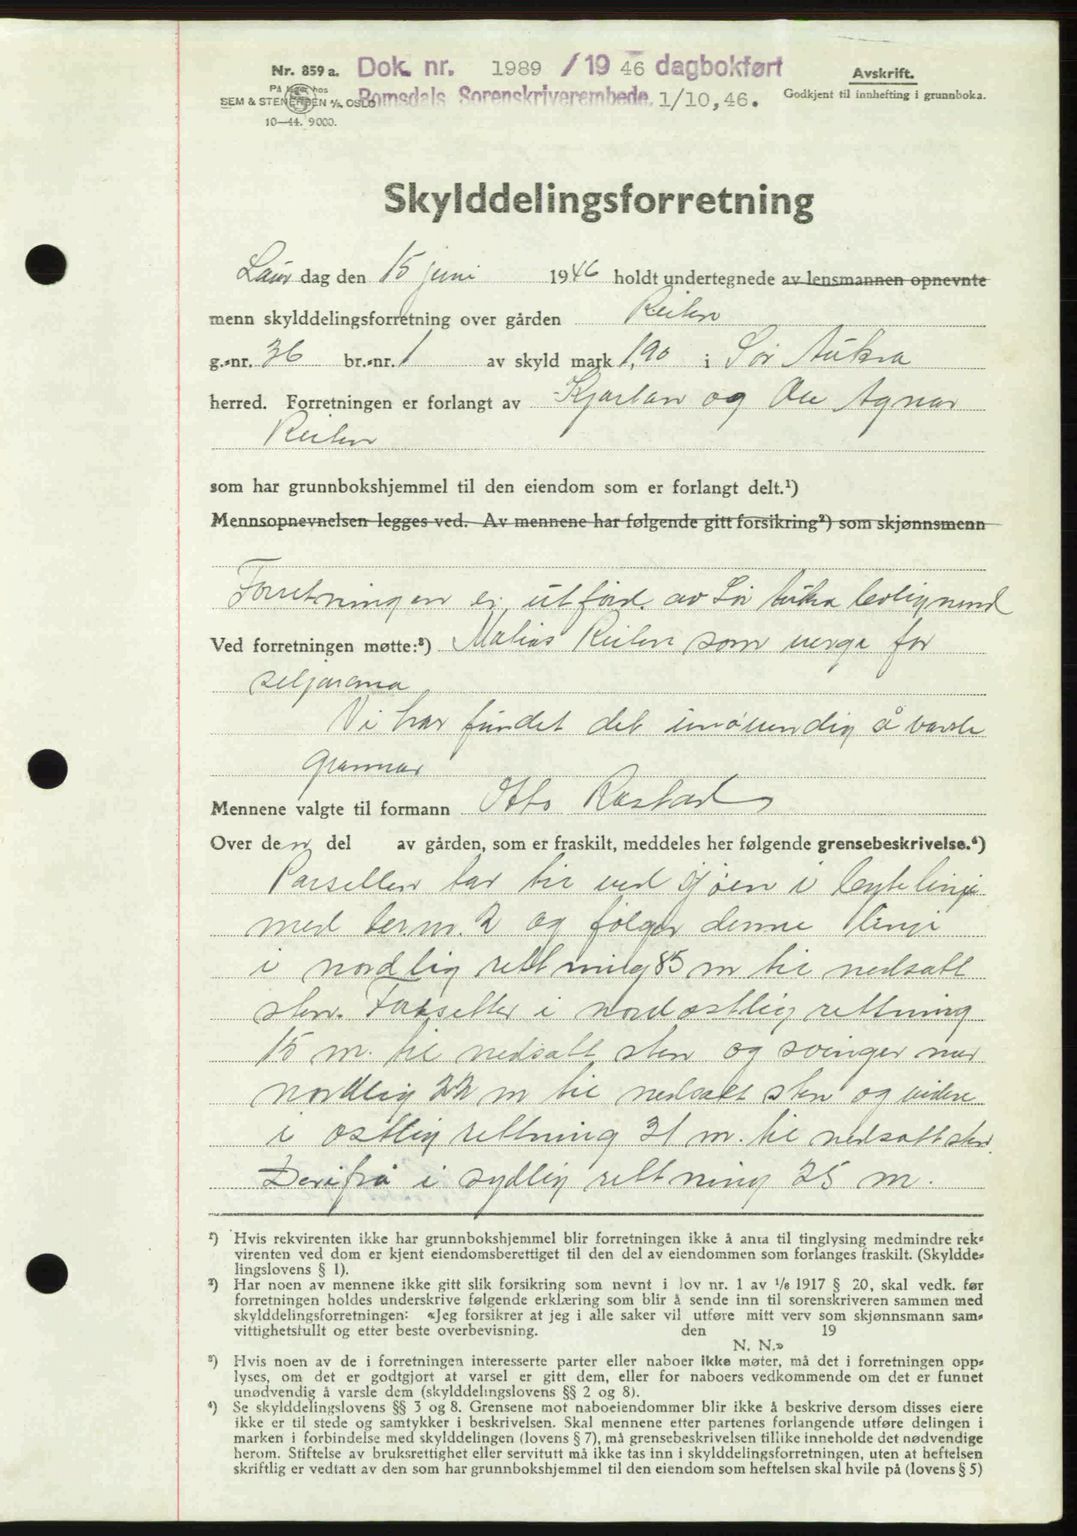 Nr. 859 a. Dok. nr. 1989 / 19 46 dagbokført Avskrift.
På lager hos
SEM & STENERSEN A/S, OSLO Romsdals Sorenskriverembede. 1/10,46. Godkjent til innhefting i grunnboka.
10—44. 9000.
Skylddelingsforretning
Laur dag den 15 juni 1946 holdt undertegnede av lensmannen opnevnte
menn skylddelingsforretning over gården Reiten
g.-nr. 36 br.-nr. 1 av skyld mark 1,90 i Sør Aukra
herred. Forretningen er forlangt av Kjartan og Ole Agnar
Reiten
som har grunnbokshjemmel til den eiendom som er forlangt delt.¹)
Mennsopnevnelsen legges ved. Av mennene har følgende gitt forsikring²) som skjønnsmenn
Forretningen er utførd av Sør Aukra
Ved forretningen møtte:³) Matias Reiten som verge for
seljarane
Vi har fundet det unøvendig å varsle
grannar
Mennene valgte til formann Otto Rastad
Over den del av gården, som er fraskilt, meddeles her følgende grensebeskrivelse.⁴)
Parsellen tar til ved sjøen i bytelinje
med br.nr. 2 og følger denne linje
i nordlig rettning 85 m til nedsatt
sten. Fortsetter i nordostlig rettning
15 m. til nedsatt sten og svinger mer
nordlig 22 m til nedsatt sten og videre
i ostlig rettning 31 m. til nedsatt sten.
Derifrå i sydlig rettning 25 m.
¹) Hvis rekvirenten ikke har grunnbokshjemmel blir forretningen ikke å anta til tinglysing medmindre rek-
virenten ved dom er kjent eiendomsberettiget til den del av eiendommen som forlanges fraskilt. (Skyldde-
lingslovens § 1).
²) Har noen av mennene ikke gitt slik forsikring som nevnt i lov nr. 1 av 1/6 1917 § 20, skal vedk. før
forretningen holdes underskrive følgende erklæring som blir å sende inn til sorenskriveren sammen med
skylddelingsforretningen: «Jeg forsikrer at jeg i alle saker vil utføre mitt verv som skjønnsmann sam-
vittighetsfullt og etter beste overbevisning. den 19
N. N.»
³) Hvis noen av de i forretningen interesserte parter eller naboer ikke møter, må det i forretningen opp-
lyses, om det er godtgjort at varsel er gitt dem, eller for naboers vedkommende om det er funnet
unødvendig å varsle dem (skylddelingslovens §§ 2 og 8).
⁴) Se skylddelingslovens §§ 3 og 8. Grensene mot naboeiendommer blir ikke å beskrive dersom disses eiere
ikke er til stede og samtykker i beskrivelsen. Skal mennene etter partenes forlangende utføre delingen i
marken i forbindelse med skylddelingen (lovens § 7), må grensebeskrivelsen tillike inneholde det nødvendige
herom. Stiftelse av bruksrettighet eller servitutt må ikke tas inn i skylddelingsforretningen, uten at heftelsen
skriftlig er vedtatt av den som har grunnbokshjemmel til den eiendom som heftelsen skal hvile på (lovens § 5)